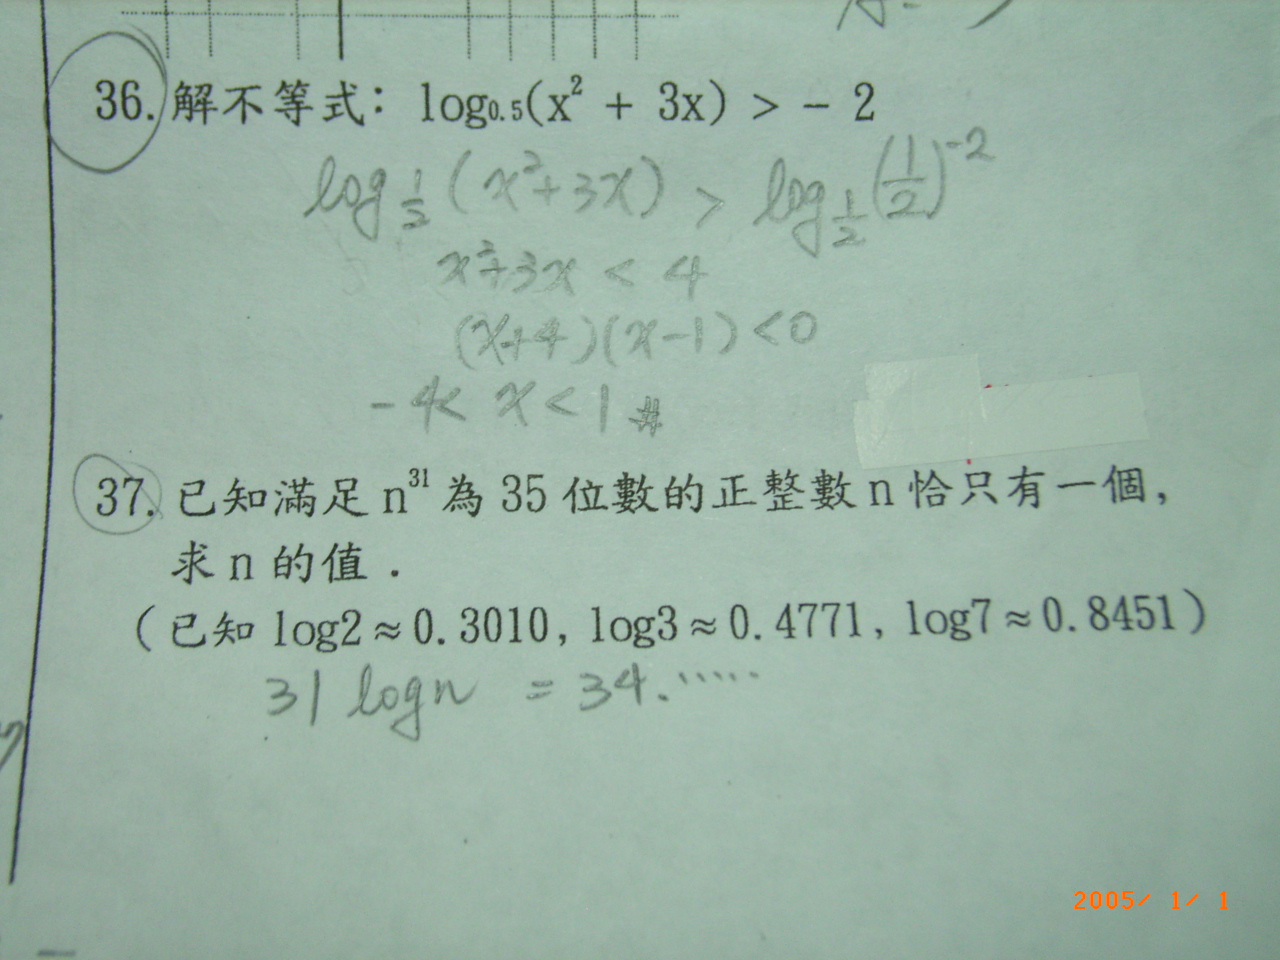 36. 解不等式: log₀.₅(x² + 3x) > - 2
log½(x²+3x) > log½(1/2)⁻²
x²+3x < 4
(x+4)(x-1)<0
-4< x<1 #
37. 已知滿足 n³¹ 為 35 位數的正整數 n 恰只有一個,
求 n 的值.
(已知 log2≈0.3010, log3≈0.4771, log7≈0.8451)
31 logn = 34.……
2005/ 1/ 1